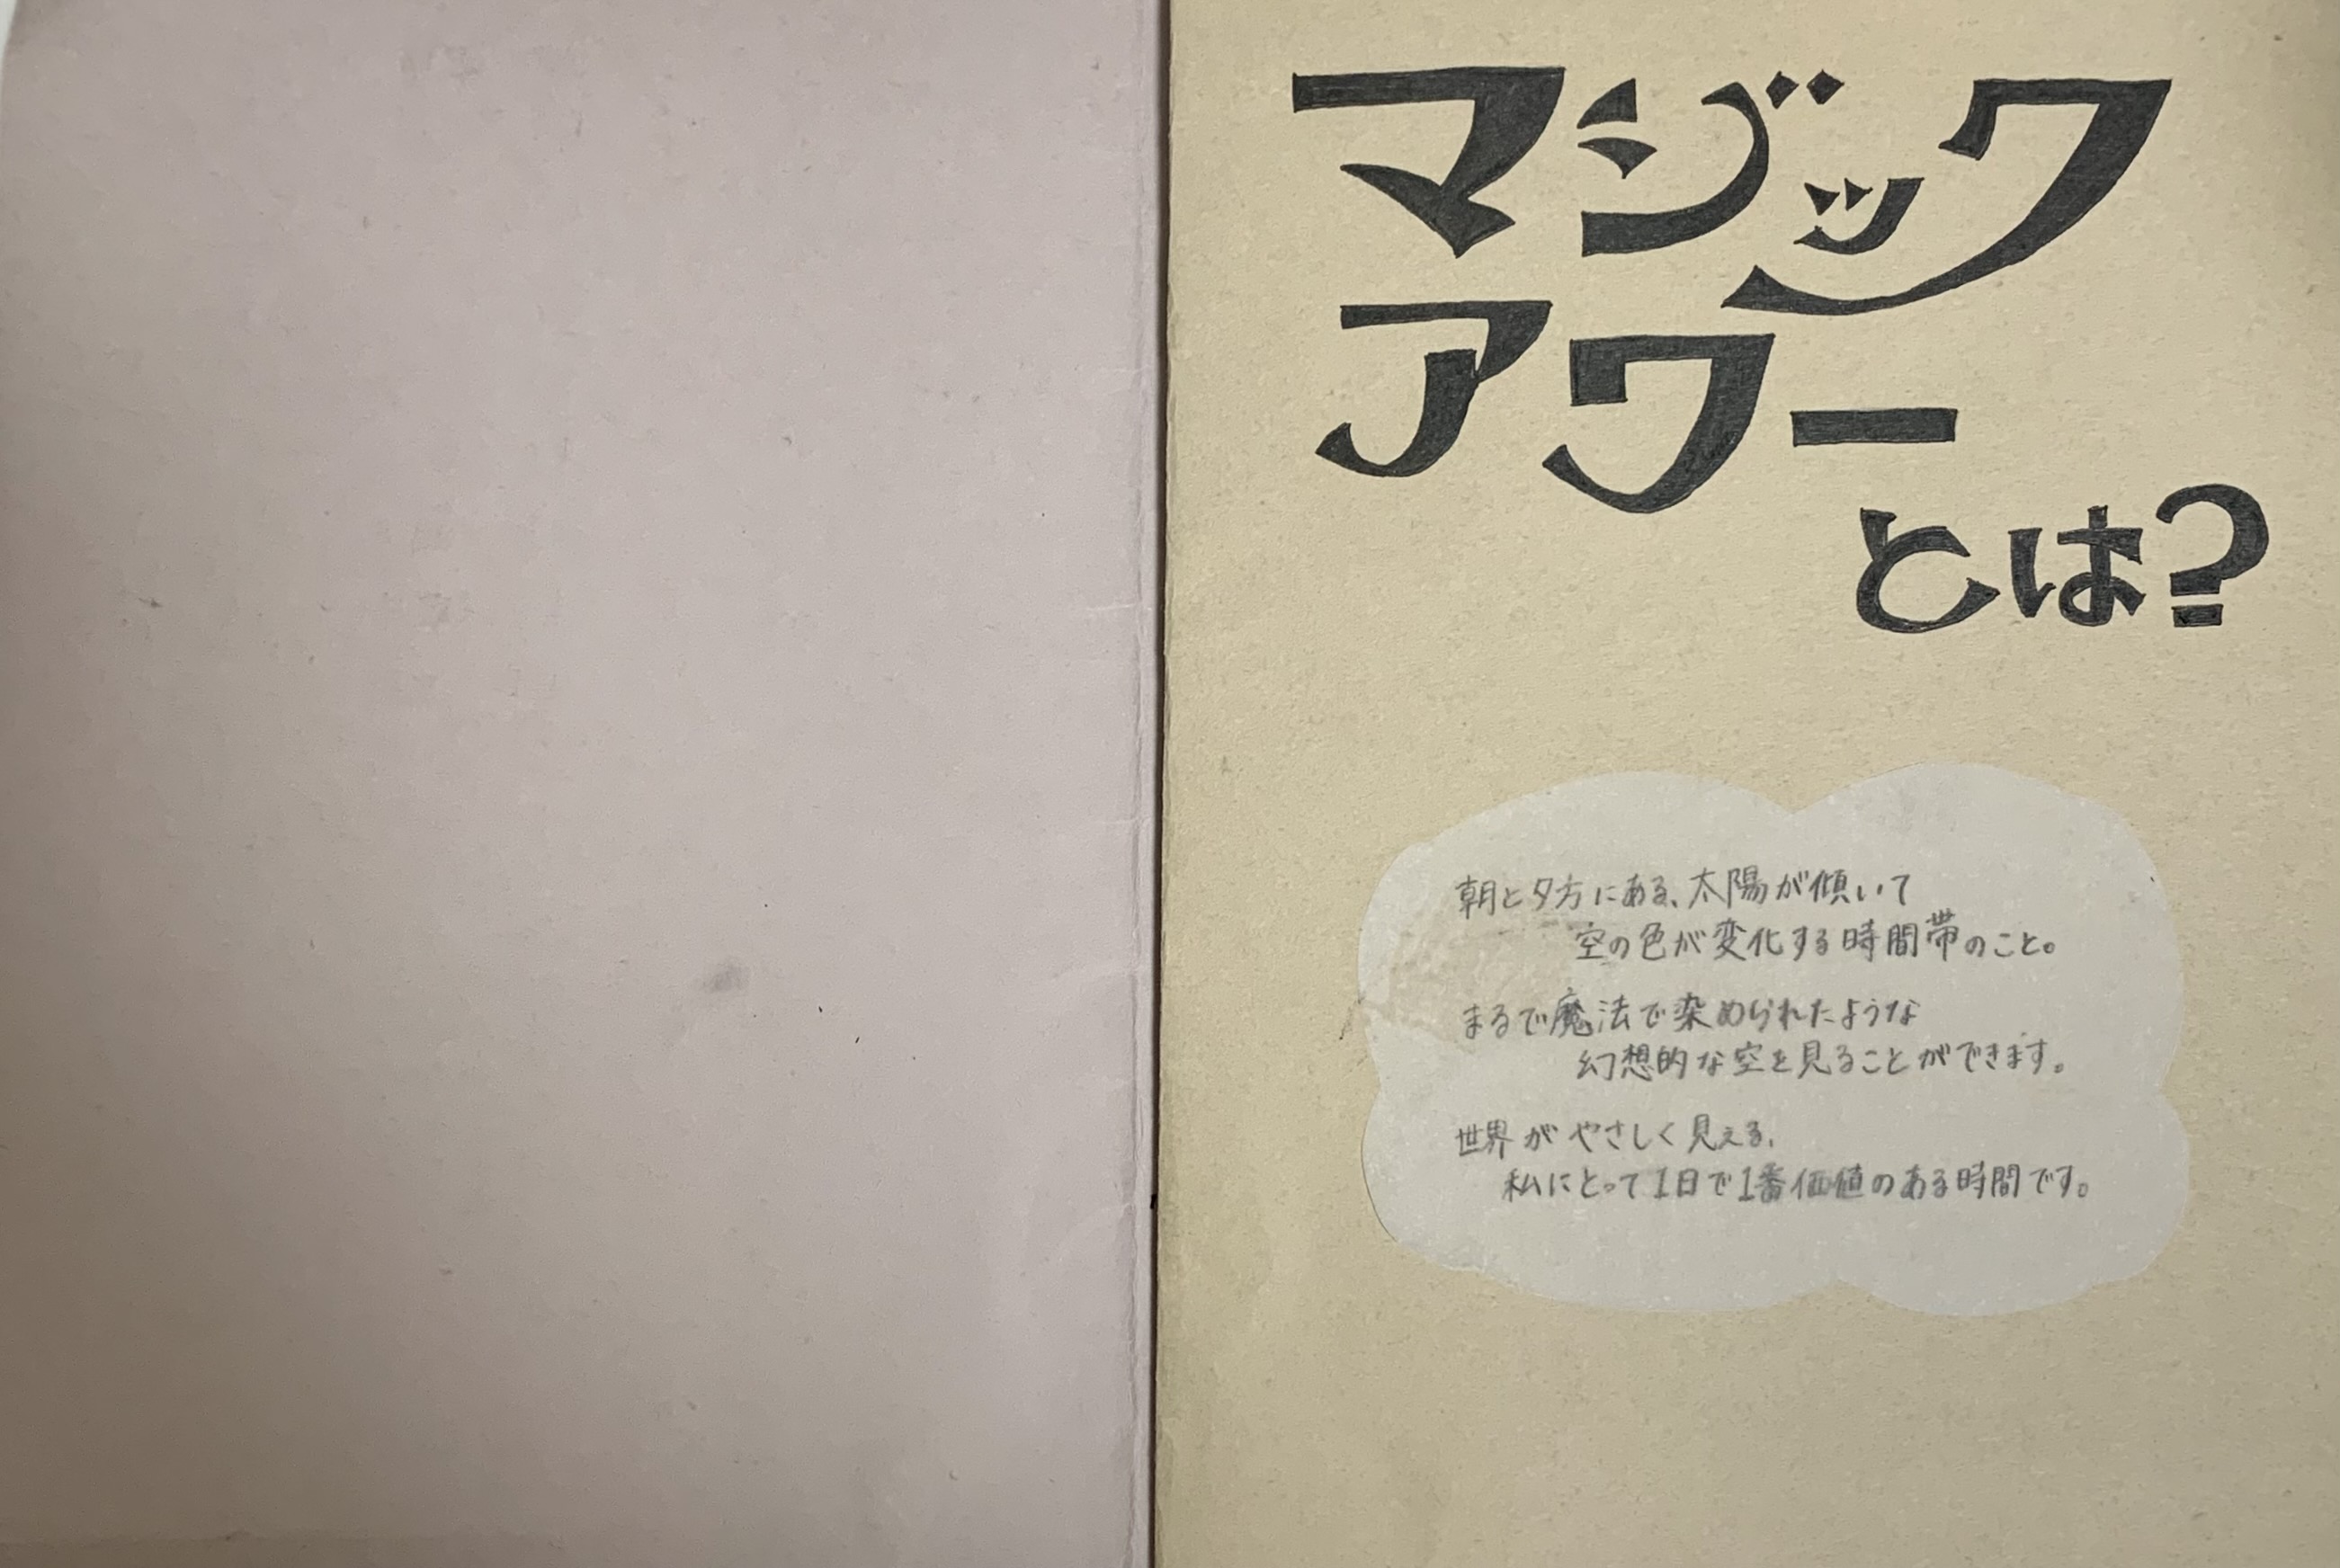 マジック
アワー
とは?
朝と夕方にある、太陽が傾いて
空の色が変化する時間帯のこと。
まるで魔法で染められたような
幻想的な空を見ることができます。
世界がやさしく見える、
私にとって1日で1番価値のある時間です。